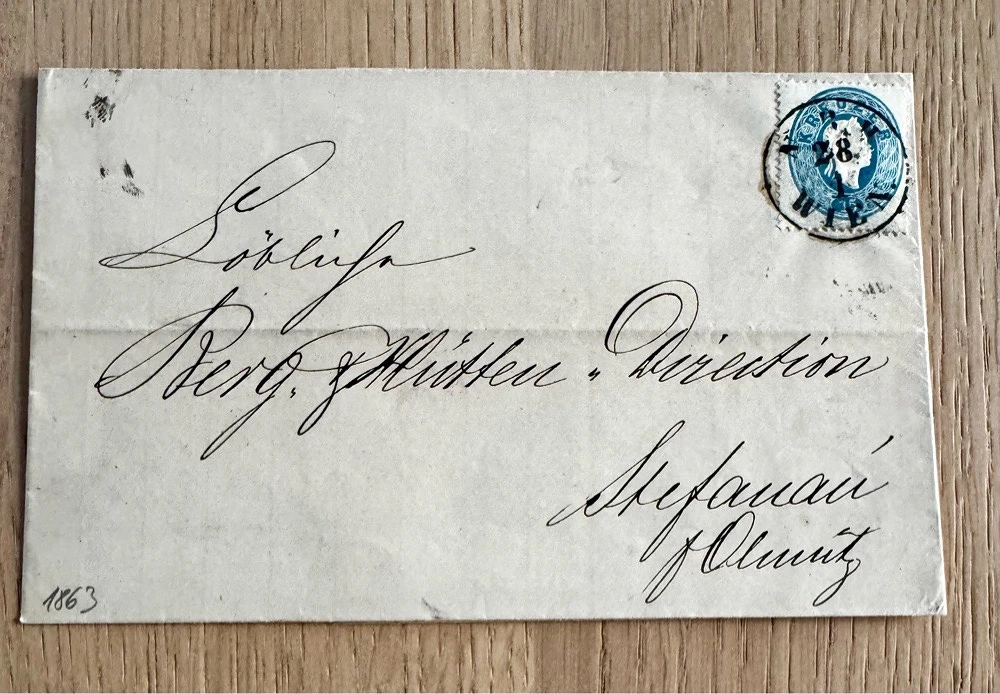 KREUZER
28
1
WIEN
Löbliche
Berg- & Hütten-Direction
Stefanau
p Olmütz
1863